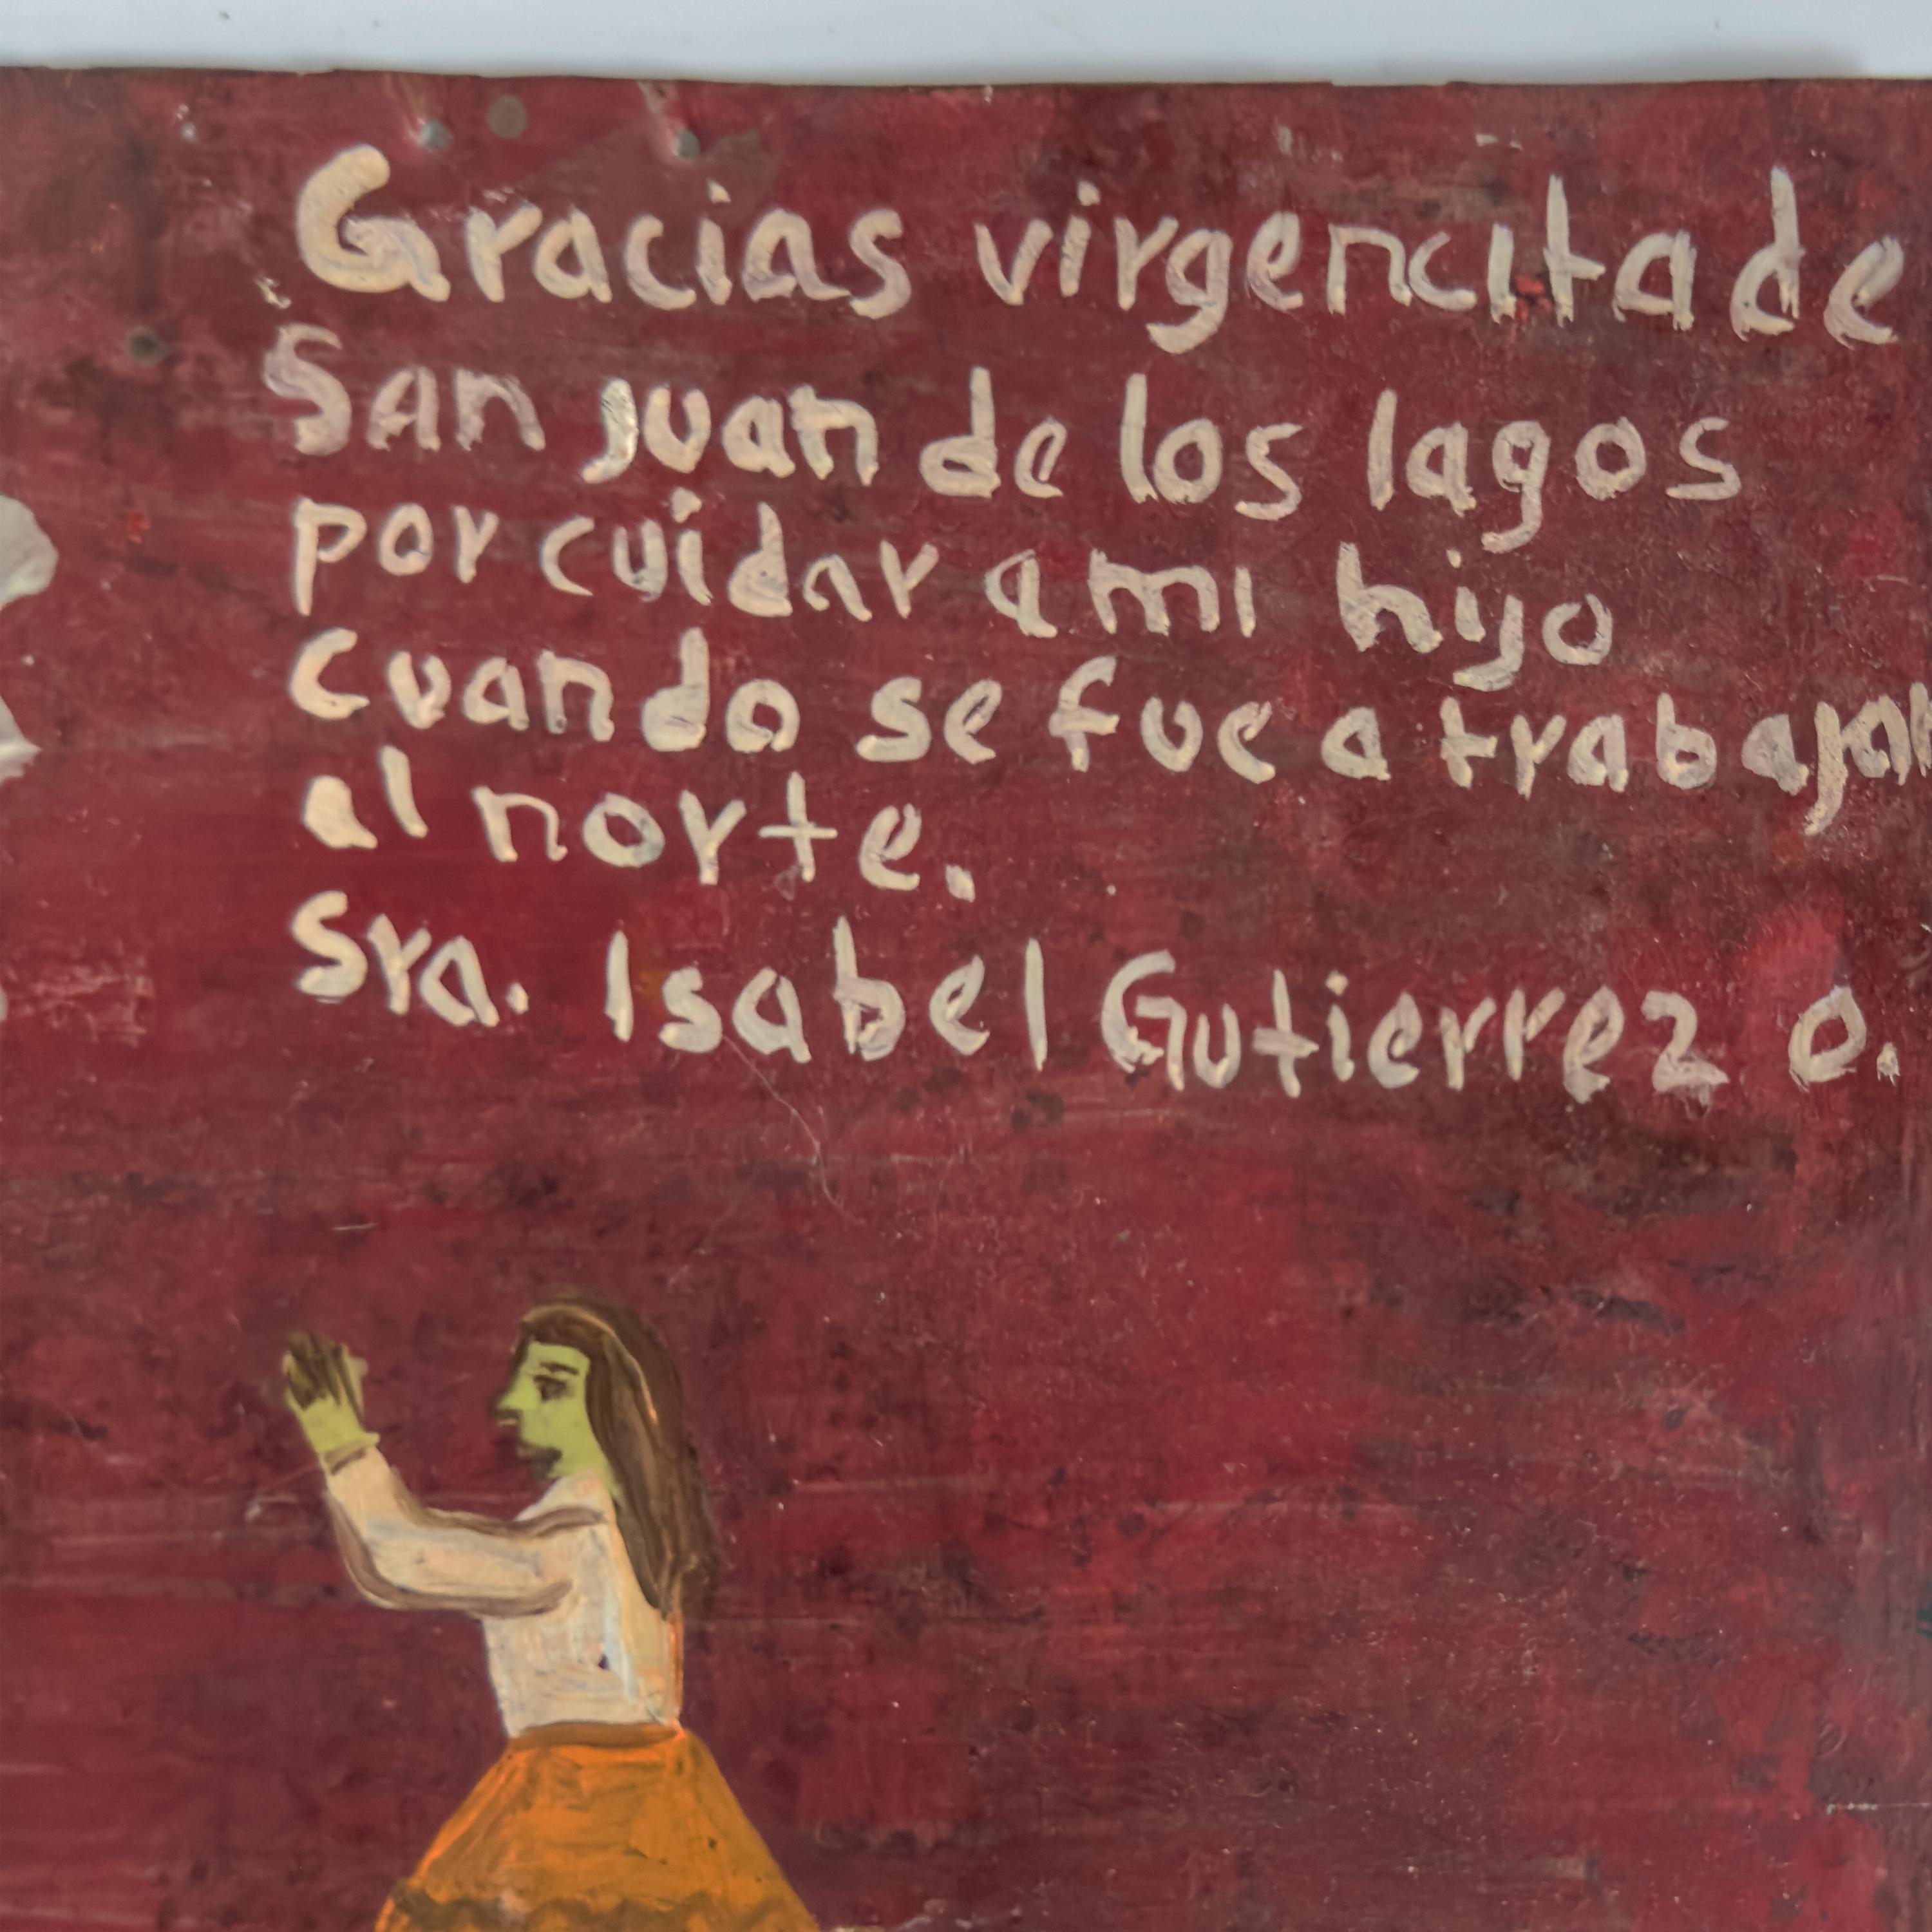 Gracias virgencita de
San juan de los lagos
por cuidar a mi hijo
cuando se fue a trabajar
al norte.
Sra. Isabel Gutierrez O.